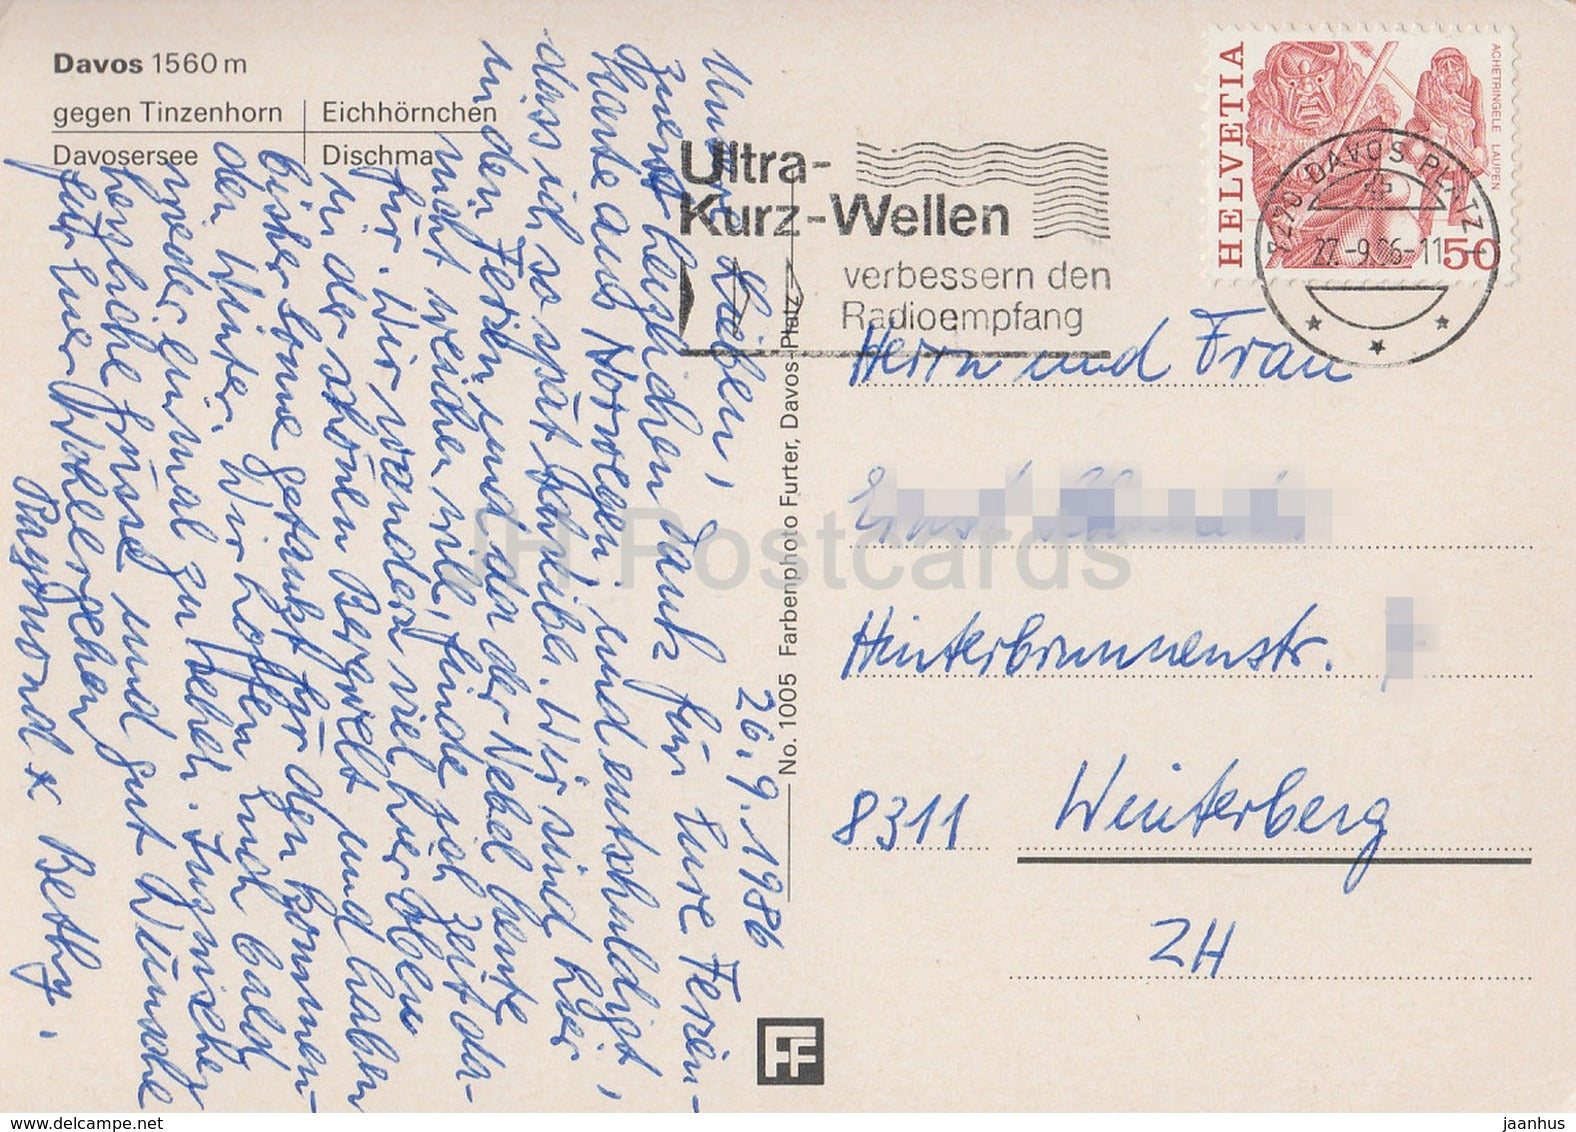 Davos 1560 m
gegen Tinzenhorn | Eichhörnchen
Davosersee | Dischma
Ultra-
Kurz-Wellen
verbessern den
Radioempfang
HELVETIA
ACHETRINGELE LAUPEN
50
7270 DAVOS PLATZ 1
27.-9.86-11
26.9.1986
Unsere Lieben,
Zuerst herzlichen Dank für Eure Ferien-
karte aus Norwegen, und entschuldigt,
dass ich so spät schreibe. Wir sind hier
in den Ferien und da der Nebel heute
nicht weichen will, finde ich Zeit da-
für. Wir wandern viel hier oben
in der schönen Bergwelt und haben
bisher Sonne getankt für den kommen-
den Winter. Wir hoffen Euch bald
wieder einmal zu sehen. Inzwischen
herzliche Grüsse und gut Wünsche
für Euer Wohlergehen
Raymond + Bethy.
No. 1005 Farbenphoto Furter, Davos-Platz
Herrn und Frau
Hinterbrunnenstr.
8311 Winterberg
ZH
FF
JH Postcards
www.delcampe.net
jaanhus